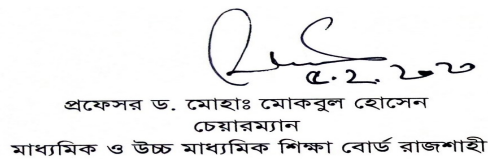 ৫.2.২০২০
প্রফেসর ড. মোহাঃ মোকবুল হোসেন
চেয়ারম্যান
মাধ্যমিক ও উচ্চ মাধ্যমিক শিক্ষা বোর্ড রাজশাহী